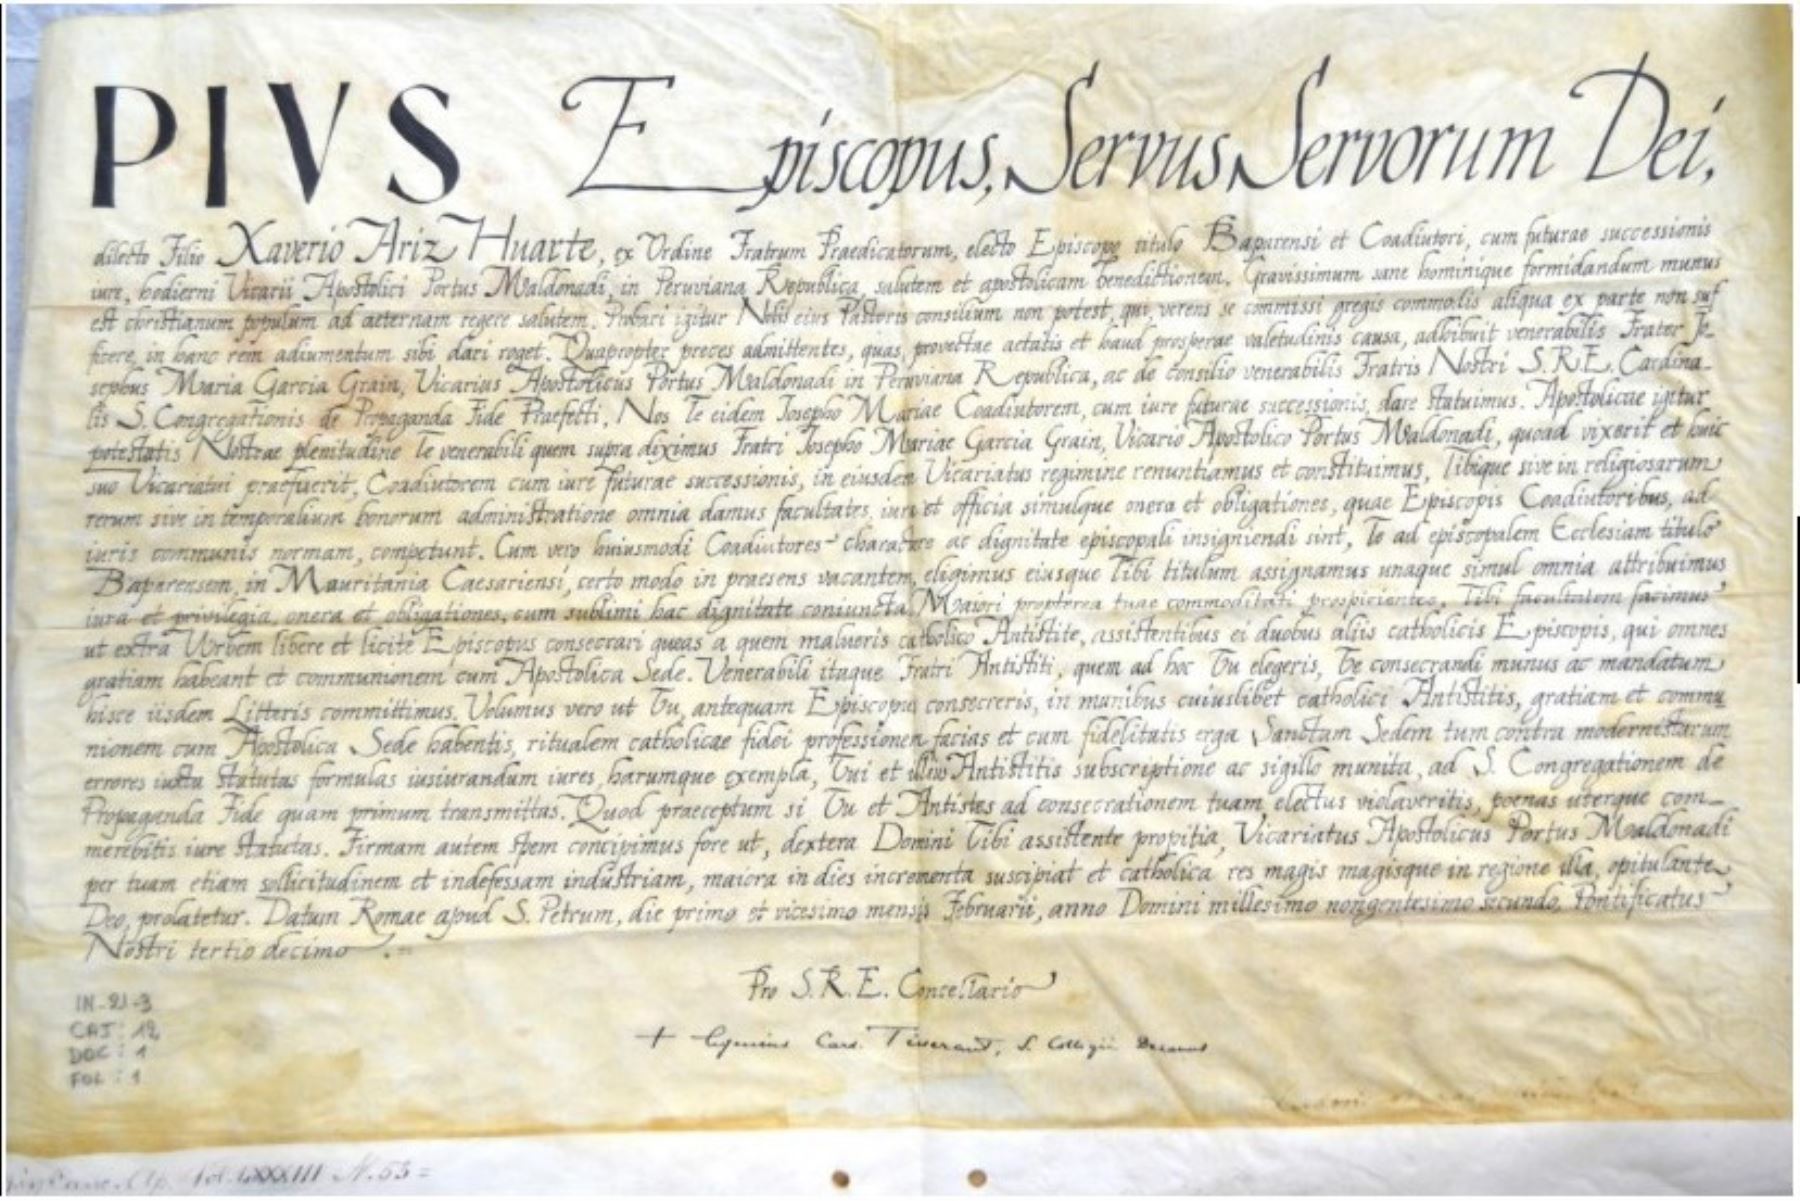 PIVS Episcopus, Servus Servorum Dei,
dilecto Filio Xaverio Ariz Huarte, ex Ordine Fratrum Praedicatorum, electo Episcopo titulo Baparensi et Coadiutori, cum futurae successionis
iure, hodierni Vicarii Apostolici Portus Maldonadi, in Peruviana Republica, salutem et apostolicam benedictionem. Gravissimum sane hominique formidandum munus
est christianum populum ad aeternam regere salutem. Probari igitur Nobis eius Pastoris consilium non potest, qui, verens se commissi gregis commodis aliqua ex parte non suf
ficere, in hanc rem adiumentum sibi dari roget. Quapropter preces admittentes, quas, provectae aetatis et haud prosperae valetudinis causa, adhibuit venerabilis Frater Jo-
sephus Maria Garcia Grain, Vicarius Apostolicus Portus Maldonadi in Peruviana Republica, ac de consilio venerabilis Fratris Nostri S.R.E. Cardina-
lis S. Congregationis de Propaganda Fide Praefecti, Nos Te eidem Iosepho Mariae Coadiutorem, cum iure futurae successionis, dare statuimus. Apostolicae igitur
potestatis Nostrae plenitudine Te venerabili quem supra diximus Fratri Iosepho Mariae Garcia Grain, Vicario Apostolico Portus Maldonadi, quoad vixerit et huic
suo Vicariatui praefuerit, Coadiutorem cum iure futurae successionis, in eiusdem Vicariatus regimine renuntiamus et constituimus, Tibique sive in religiosarum
rerum sive in temporalium bonorum administratione omnia damus facultates, iura et officia simulque onera et obligationes, quae Episcopis Coadiutoribus, ad
iuris communis normam, competunt. Cum vero huiusmodi Coadiutores charactere ac dignitate episcopali insigniendi sint, Te ad episcopalem Ecclesiam titulo
Baparensem, in Mauritania Caesariensi, certo modo in praesens vacantem, eligimus eiusque Tibi titulum assignamus unaque simul omnia attribuimus
iura et privilegia, onera et obligationes, cum sublimi hac dignitate coniuncta. Maiori propterea tuae commoditati prospicientes, Tibi facultatem facimus
ut extra Urbem libere et licite Episcopus consecrari queas a quem malueris catholico Antistite, assistentibus ei duobus aliis catholicis Episcopis, qui omnes
gratiam habeant et communionem cum Apostolica Sede. Venerabili itaque Fratri Antistiti, quem ad hoc Tu elegeris, Te consecrandi munus ac mandatum
hisce iisdem Litteris committimus. Volumus vero ut Tu, antequam Episcopus consecreris, in manibus cuiuslibet catholici Antistitis, gratiam et commu
nionem cum Apostolica Sede habentis, ritualem catholicae fidei professionem facias et cum fidelitatis erga Sanctam Sedem tum contra modernistarum
errores iuxta statutas formulas iusiurandum iures, harumque exempla, Tui et illius Antistitis subscriptione ac sigillo munita, ad S. Congregationem de
Propaganda Fide quam primum transmittas. Quod praeceptum si Tu et Antistes ad consecrationem tuam electus violaveritis, poenas uterque com-
merebitis iure statutas. Firmam autem spem concipimus fore ut, dextera Domini Tibi assistente propitia, Vicariatus Apostolicus Portus Maldonadi
per tuam etiam sollicitudinem et indefessam industriam, maiora in dies incrementa suscipiat et catholica res magis magisque in regione illa, opitulante
Deo, prolatetur. Datum Romae apud S. Petrum, die primo et vicesimo mensis Februarii, anno Domini millesimo nongentesimo secundo, Pontificatus
Nostri tertio decimo.=
Pro S.R.E. Cancellario
+ Eugenius Card. Tisserant, S. Collegii Decanus
IN-21-3
CAJ: 12
DOC: 1
FOL: 1
Vol. LXXXIII N. 53=